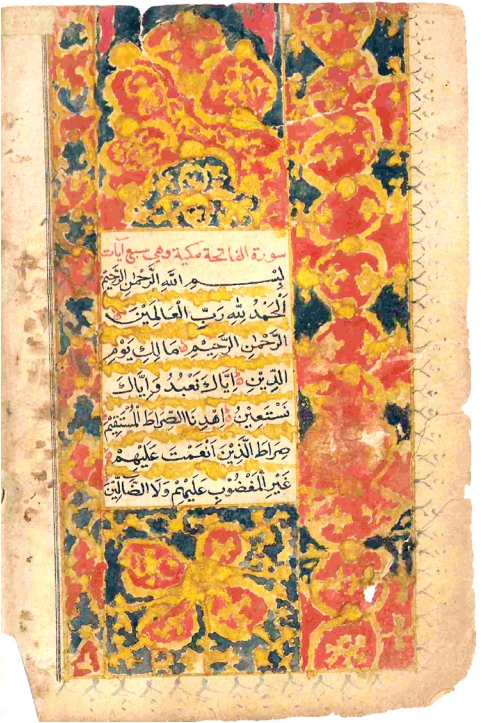 سورة الفاتحة مكية وهي سبع آيات
بِسْمِ اللَّهِ الرَّحْمٰنِ الرَّحِيْمِ
اَلْحَمْدُ لِلّٰهِ رَبِّ الْعَالَمِيْنَ
الرَّحْمٰنِ الرَّحِيْمِ مَالِكِ يَوْمِ
الدِّيْنِ اِيَّاكَ نَعْبُدُ وَاِيَّاكَ
نَسْتَعِيْنُ اِهْدِنَا الصِّرَاطَ الْمُسْتَقِيْمَ
صِرَاطَ الَّذِيْنَ اَنْعَمْتَ عَلَيْهِمْ
غَيْرِ الْمَغْضُوْبِ عَلَيْهِمْ وَلَا الضَّالِّيْنَ